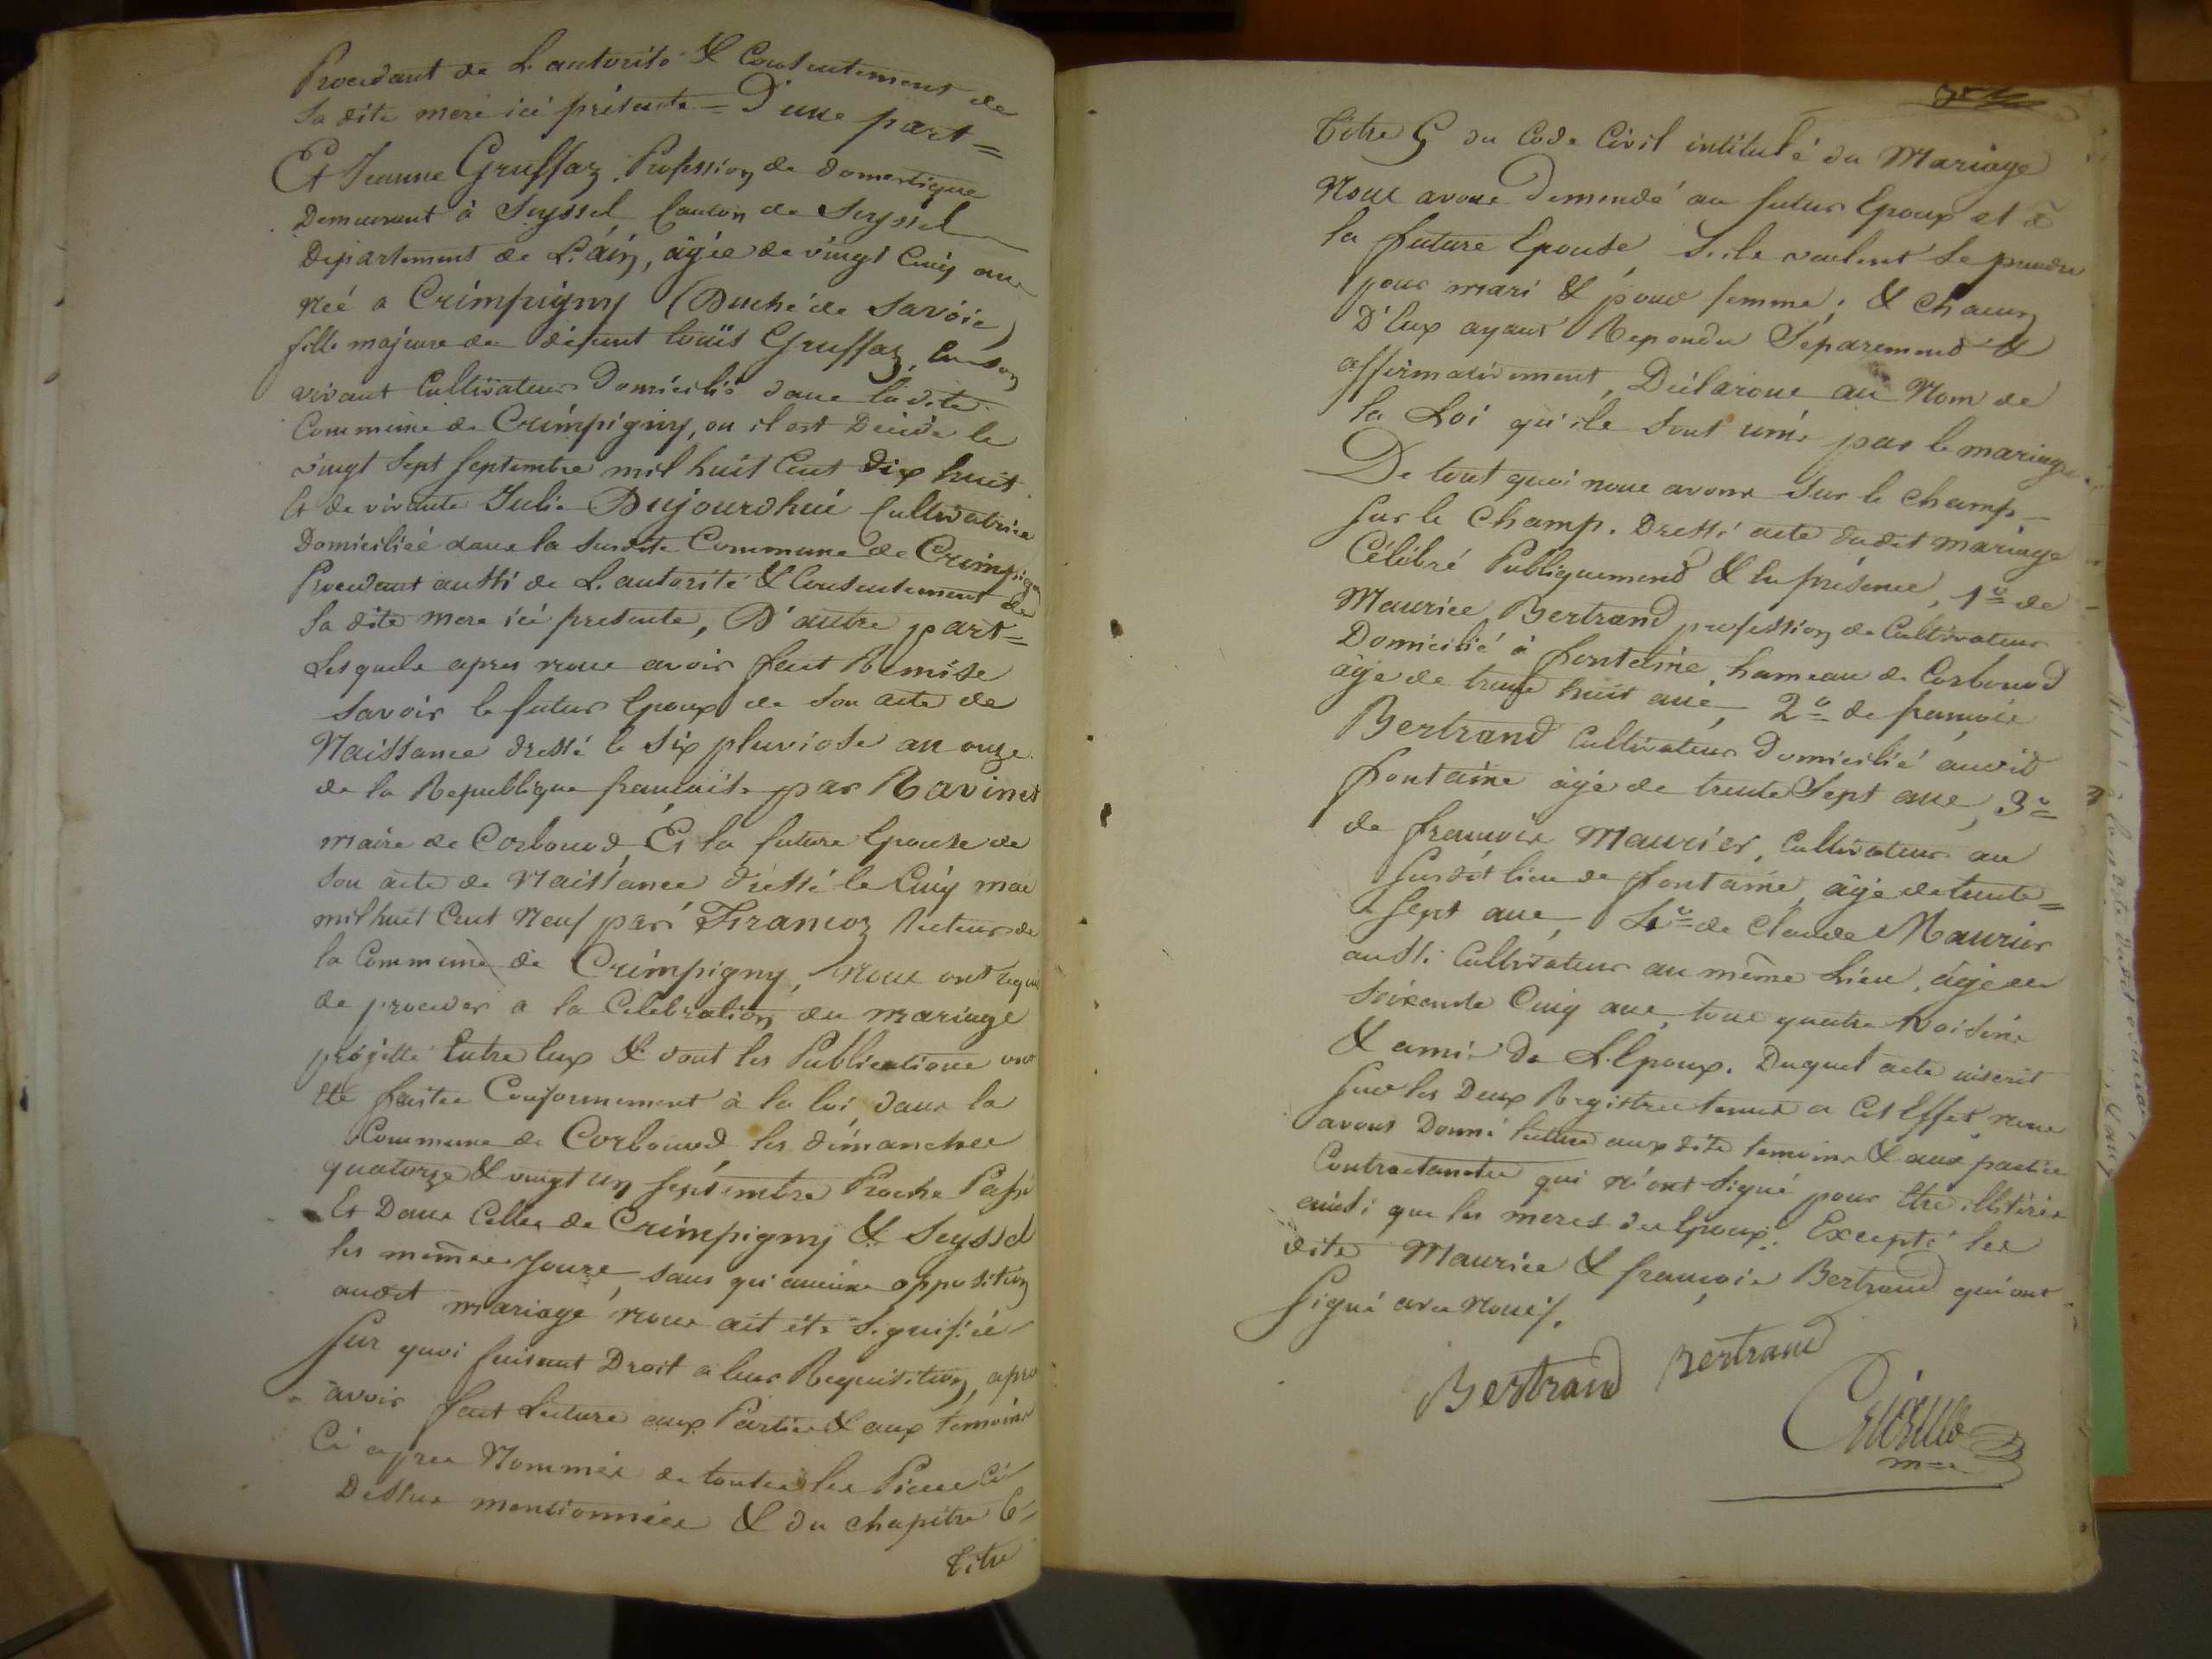 Procedant de L'autorité & Consentement de
sa dite mere ici présente = D'une part =
Et Jeanne Gruffaz, Profession de domestique
Demeurant à Seyssel Canton de Seyssel
Departement de L'ain, âgée de vingt Cinq ans
Neé a Crimpigny (Duché de Savoie)
fille majeure de défunt Louis Gruffaz, en son
vivant Cultivateur Domicilié dans la dite
Commune de Crimpigny, ou il est Décédé le
vingt Sept Septembre mil huit Cent dix huit
Et de vivante Julie Dujourdhui Cultivatrice
Domiciliée dans la susdite Commune de Crimpigny
Procedant aussi de L'autorité & Consentement de
sa dite mere ici presente, D'autre part =
Lesquels apres nous avoir fait Remise
Savoir le futur Epoux de son acte de
Naissance dressé le Six pluviose an onze
de la Republique francaise par Ravinet
maire de Corbonod, Et la future Epouse de
son acte de Naissance dressé le Cinq mai
mil huit Cent Neuf par Francoz Recteur de
la Commune de Crimpigny, Nous ont requis
de proceder a la Celebration du mariage
projetté Entre Eux & dont les Publications ont
Eté faites Conformement à la loi dans la
Commune de Corbonod les dimanches
quatorze & vingt un septembre Proche Passé
Et Dans Celles de Crimpigny & Seyssel
les mêmes Jours, sans qu'aucune opposition
audit mariage nous ait été Signifiée
Sur quoi faisant Droit a leur Requisition, apres
avoir fait Lecture aux Parties & aux temoins
Ci apres Nommés de toutes les Pieces Ci
Dessus mentionnées & du chapitre 6 =
Titre
Titre 5 du Code Civil intitulé du Mariage
Nous avons Demandé au futur Epoux et à
la future Epouse S'ils veulent se prendre
pour mari & pour femme; & Chacun
D'Eux ayant Repondu Séparement &
affirmativement, Déclarons au Nom de
la Loi qu'ils sont unis par le mariage.
De tout quoi nous avons sur le champ
sur le champ. Dressé acte dudit mariage
Célébré Publiquement & En présence, 1º de
Maurice Bertrand profession de Cultivateur
Domicilié à fontaine, hameau de Corbonod
âgé de trente huit ans, 2º de francois
Bertrand Cultivateur Domicilié audit
fontaine âgé de trente Sept ans, 3º
de francois Maurier, Cultivateur au
Susdit lieu de fontaine, âgé de trente =
sept ans, 4º de Claude Maurier
aussi Cultivateur au même Lieu, âgé de
soixante Cinq ans, tous quatre Voisins
& amis de L'Epoux. Duquel acte inscrit
sur les Deux Registres tenus a Cet Effet nous
avons Donné lecture auxdits temoins & aux parties
Contractantes qui n'ont signé pour Etre illitérés
ainsi que les meres des Epoux. Excepté les
dits Maurice & françois Bertrand qui ont
signé avec Nous.
Bertrand Bertrand